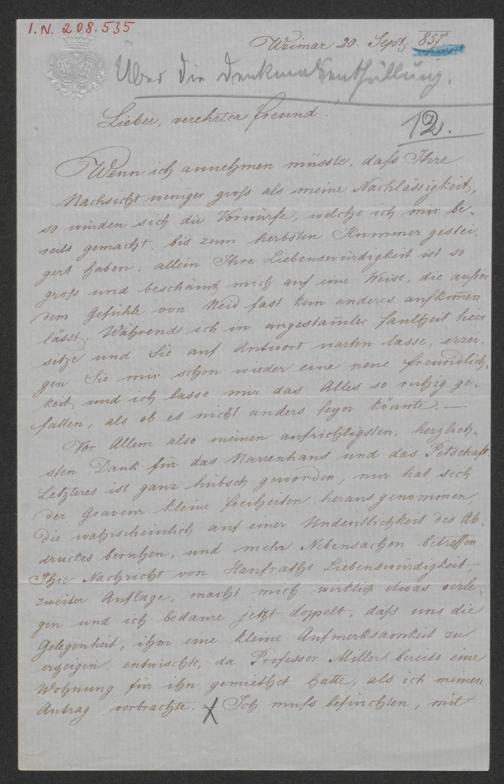 I.N. 208.535
Weimar 20. Sept. 857.
Über die Denkmalsenthüllung.
Lieber, verehrter Freund.
12.
Wenn ich annehmen müsste, dass Ihre
Nachsicht weniger gross als meine Nachlässigkeit,
so würden sich die Vorwürfe, welche ich mir be-
reits gemacht, bis zum herbsten Kummer gestei-
gert haben, allein Ihre Liebenswürdigkeit ist so
gross und beschämt mich auf eine Weise, die ausser
dem Gefühle von Neid fast kein anderes aufkommen
lässt. Während ich in angestammter Faulheit hier
sitze und Sie auf Antwort warten lasse, erzei-
gen Sie mir schon wieder eine neue Freundlich-
keit, und ich lasse mir das Alles so ruhig ge-
fallen, als ob es nicht anders seyn könnte. —
Vor Allem also meinen aufrichtigsten, herzlich-
sten Dank für das Narrenhaus und das Petschaft
Letzteres ist ganz hübsch geworden, nur hat sich
der Graveur kleine Freiheiten herausgenommen,
die wahrscheinlich auf einer Undeutlichkeit des Ab-
druckes beruhen, und mehr Nebensachen betreffen
Ihre Nachricht von Hanfstängls Liebenswürdigkeit,
zweiter Auflage, macht mich wirklich etwas verle-
gen und ich bedaure jetzt doppelt, dass uns die
Gelegenheit, ihm eine kleine Aufmerksamkeit zu
erzeigen, entwischte, da Professor Müller bereits eine
Wohnung für ihn gemiethet hatte, als ich meinen
Antrag vorbrachte. X Ich muss befürchten, mit